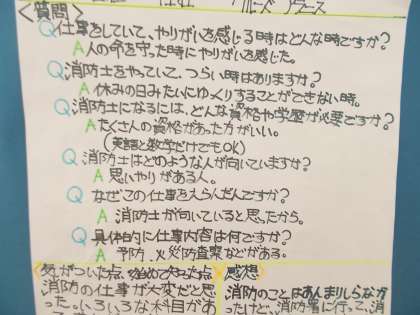 <質問>
Q仕事をしていて、やりがいを感じる時はどんな時ですか?
A人の命を守った時にやりがいを感じた。
Q消防士をやっていて、つらい時はありますか?
A休みの日みたいにゆっくりすることができない時。
Q消防士になるには、どんな資格や学歴が必要ですか?
Aたくさんの資格があった方がいい。
(英語と数学だけでもOK)
Q消防士はどのような人が向いていますか?
A思いやりがある人。
Qなぜこの仕事をえらんだんですか?
A消防士が向いていると思ったから。
Q具体的に仕事内容は何ですか?
A予防、火災防査察などがある。
気がついた点、初めて知った点
消防の仕事が大変だと思
った。いろいろな科目があ
感想
消防のことはあんまりしらなか
ったけど、消防署に行って、消